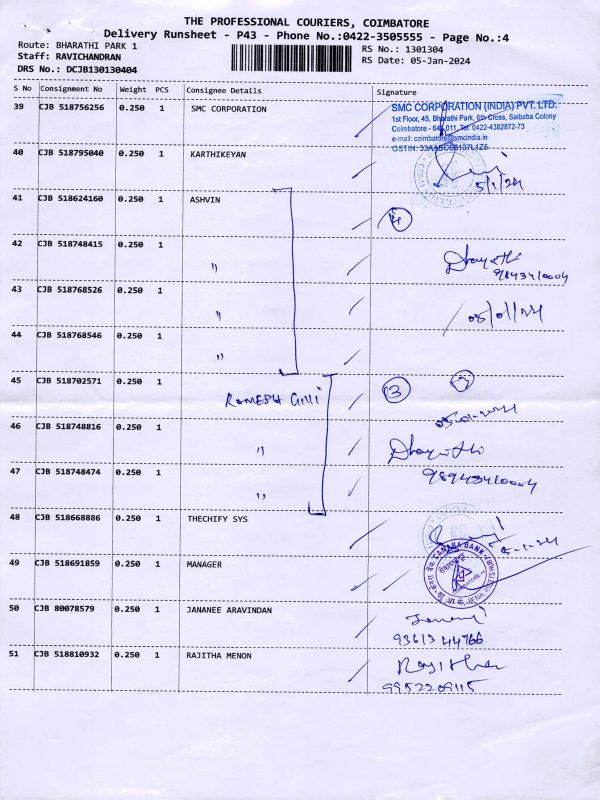 THE PROFESSIONAL COURIERS, COIMBATORE
Delivery Runsheet - P43 - Phone No.:0422-3505555 - Page No.:4
Route: BHARATHI PARK 1
RS No.: 1301304
Staff: RAVICHANDRAN
RS Date: 05-Jan-2024
DRS No.: DCJB130130404
S No Consignment No Weight PCS Consignee Details Signature
39 CJB 518756256 0.250 1 SMC CORPORATION
SMC CORPORATION (INDIA) PVT. LTD.
1st Floor, 45, Bharathi Park, 6th Cross, Saibaba Colony
Coimbatore - 641 011, Tel: 0422-4382872-73
e-mail: coimbatore@smcindia.in
40 CJB 518795040 0.250 1 KARTHIKEYAN
5/1/24
41 CJB 518624160 0.250 1 ASHVIN
4
42 CJB 518748415 0.250 1 "
43 CJB 518768526 0.250 1 "
05/01/24
44 CJB 518768546 0.250 1 "
45 CJB 518702571 0.250 1 RAMESH Gilli
3
46 CJB 518748816 0.250 1 "
47 CJB 518748474 0.250 1 "
98943410004
48 CJB 518668886 0.250 1 THECHIFY SYS
5-1-24
49 CJB 518691859 0.250 1 MANAGER
CANARA BANK
50 CJB 80078579 0.250 1 JANANEE ARAVINDAN
9361344766
51 CJB 518810932 0.250 1 RAJITHA MENON
9952209115